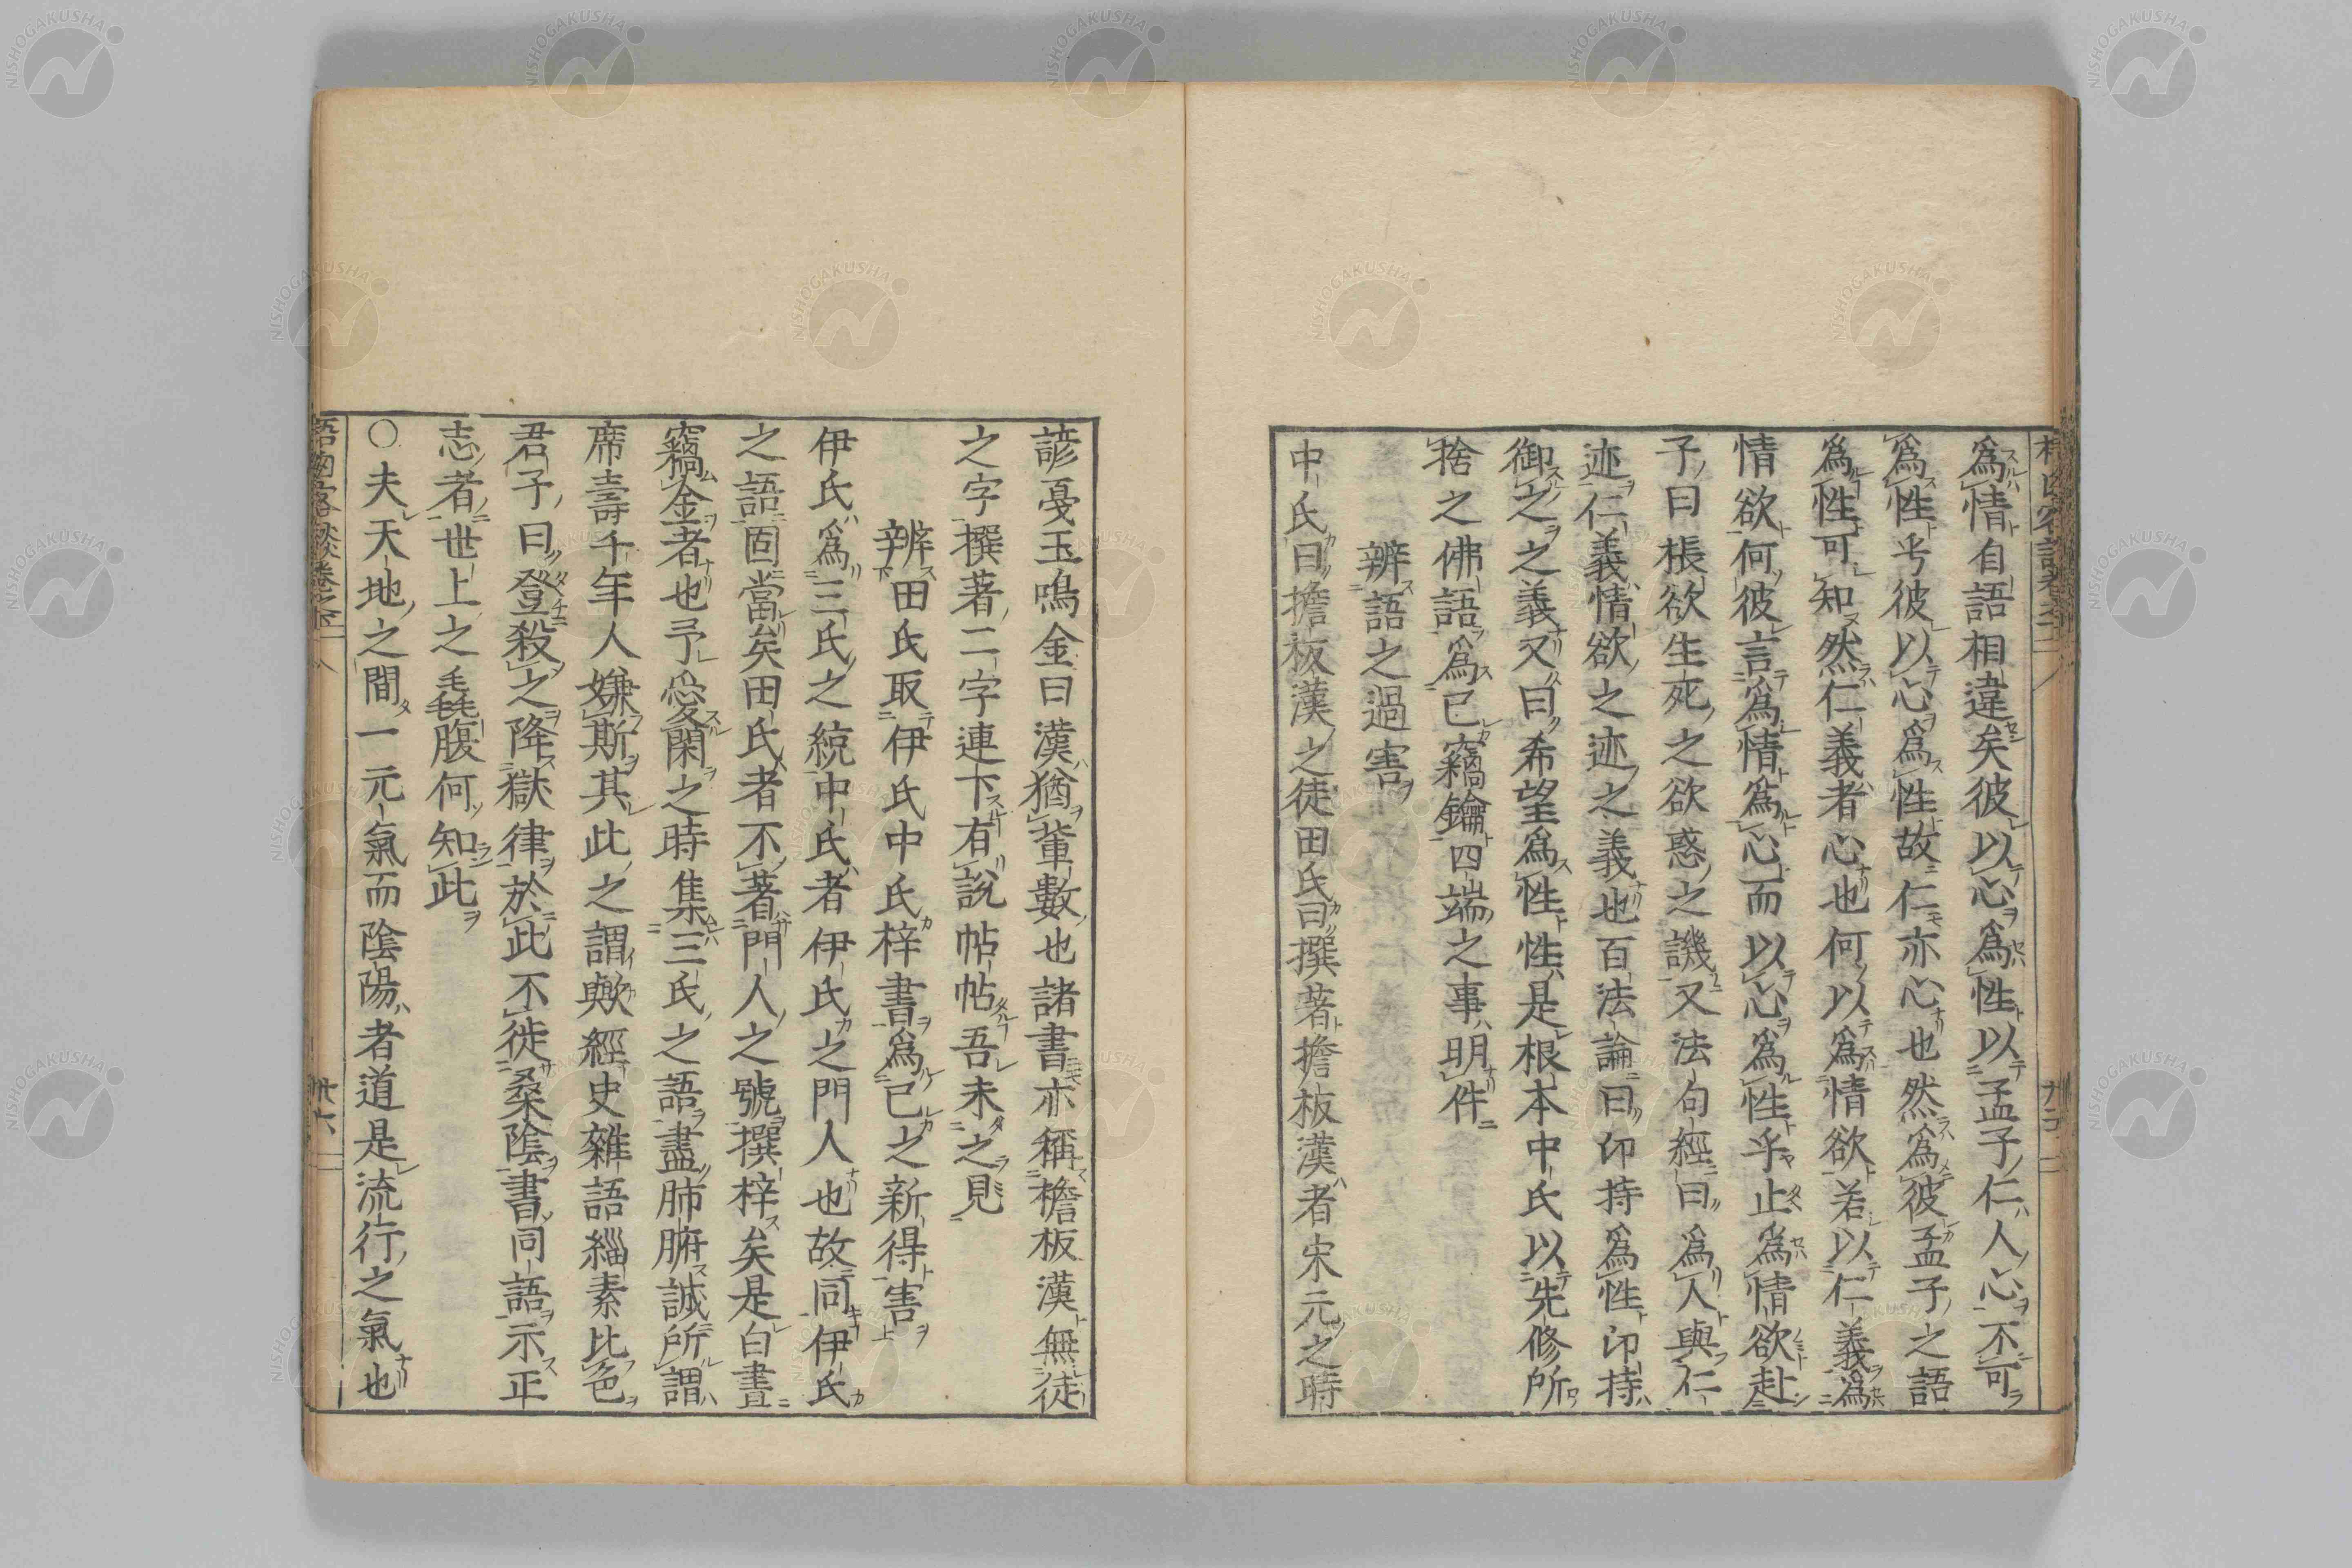 爲情自語相違矣彼以心爲性以孟子仁人心不可
爲性乎彼以心爲性故仁亦心也然爲彼孟子之語
爲性可知然仁義者心也何以爲情欲若以仁義爲
情欲何彼言爲情爲心而以心爲性乎止爲情欲赴
子曰棖欲生死之欲惑之譏又法句經曰爲人與仁
迹仁義情欲之迹之義也百法論曰印持爲性印持
御之之義又曰希望爲性性是根本中氏以先修所
捨之佛語爲已竊鑰四端之事明件
辨語之過害
中氏曰擔板漢之徒田氏曰撰著擔板漢者宋元之時
諺戞玉鳴金曰漢猶軰數也諸書亦稱檐板漢無徒
之字撰著二字連下有說帖帖吾未之見
辨田氏取伊氏中氏梓書爲已之新得害
伊氏爲三氏之統中氏者伊氏之門人也故同伊氏
之語固當矣田氏者不著門人之號撰梓矣是白晝
竊金者也予愛閑之時集三氏之語盡肺腑誠所謂
席壽千年人嫌斯其此之謂歟經史雜語緇素比色
君子曰登殺之降獄律於此不徙桑陰書同語示正
志者世上之毳腹何知此
○夫天地之間一元氣而陰陽者道是流行之氣也